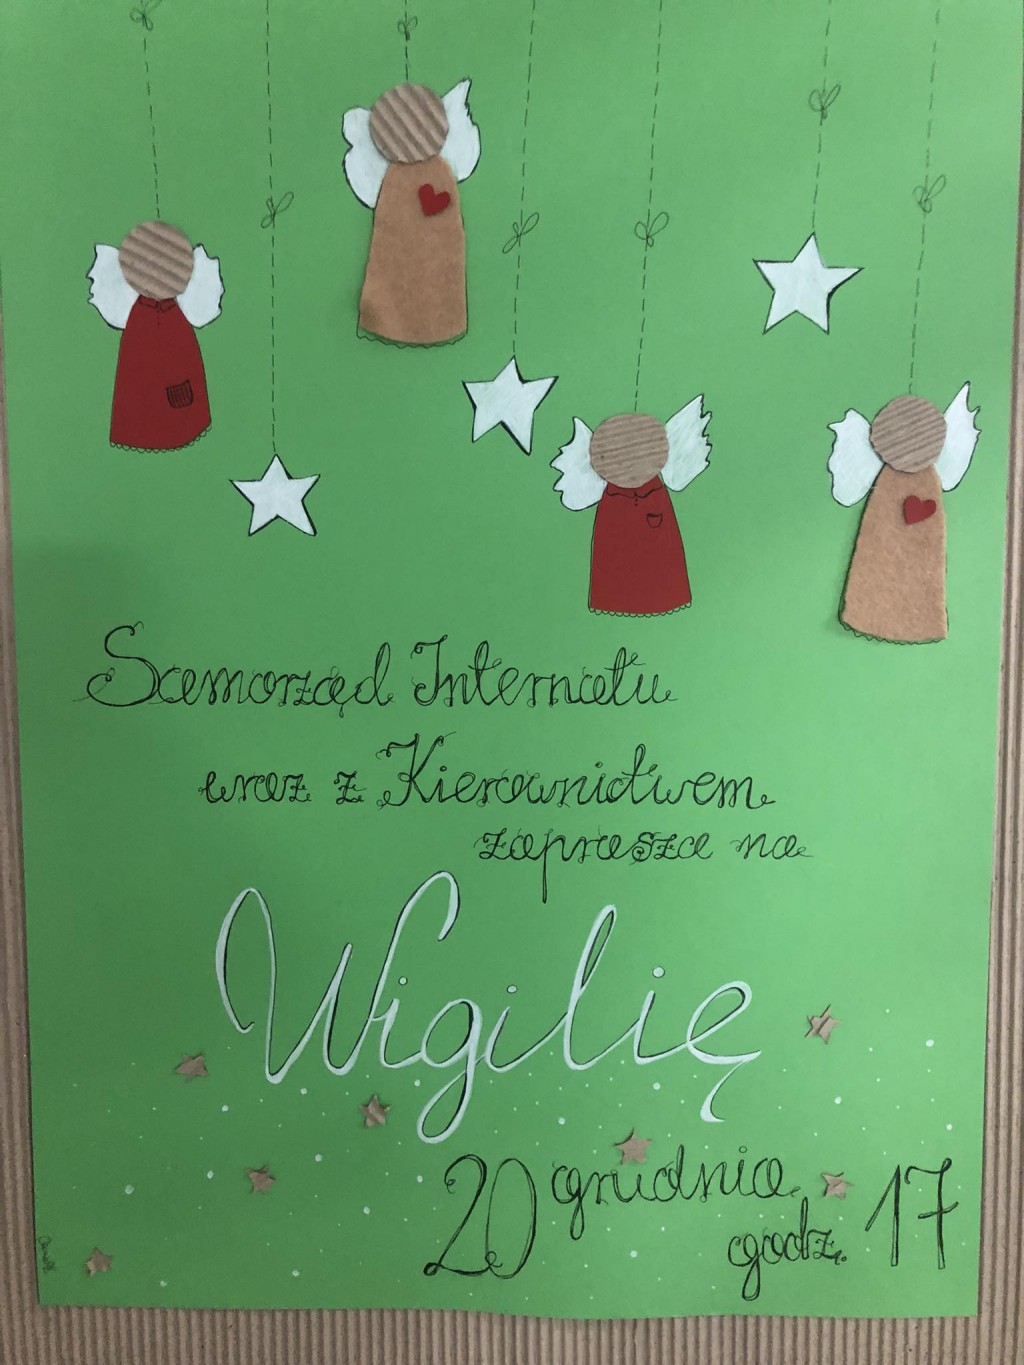 Samorząd Internatu
wraz z Kierownictwem
zaprasza na
Wigilię
20 grudnia
godz. 17